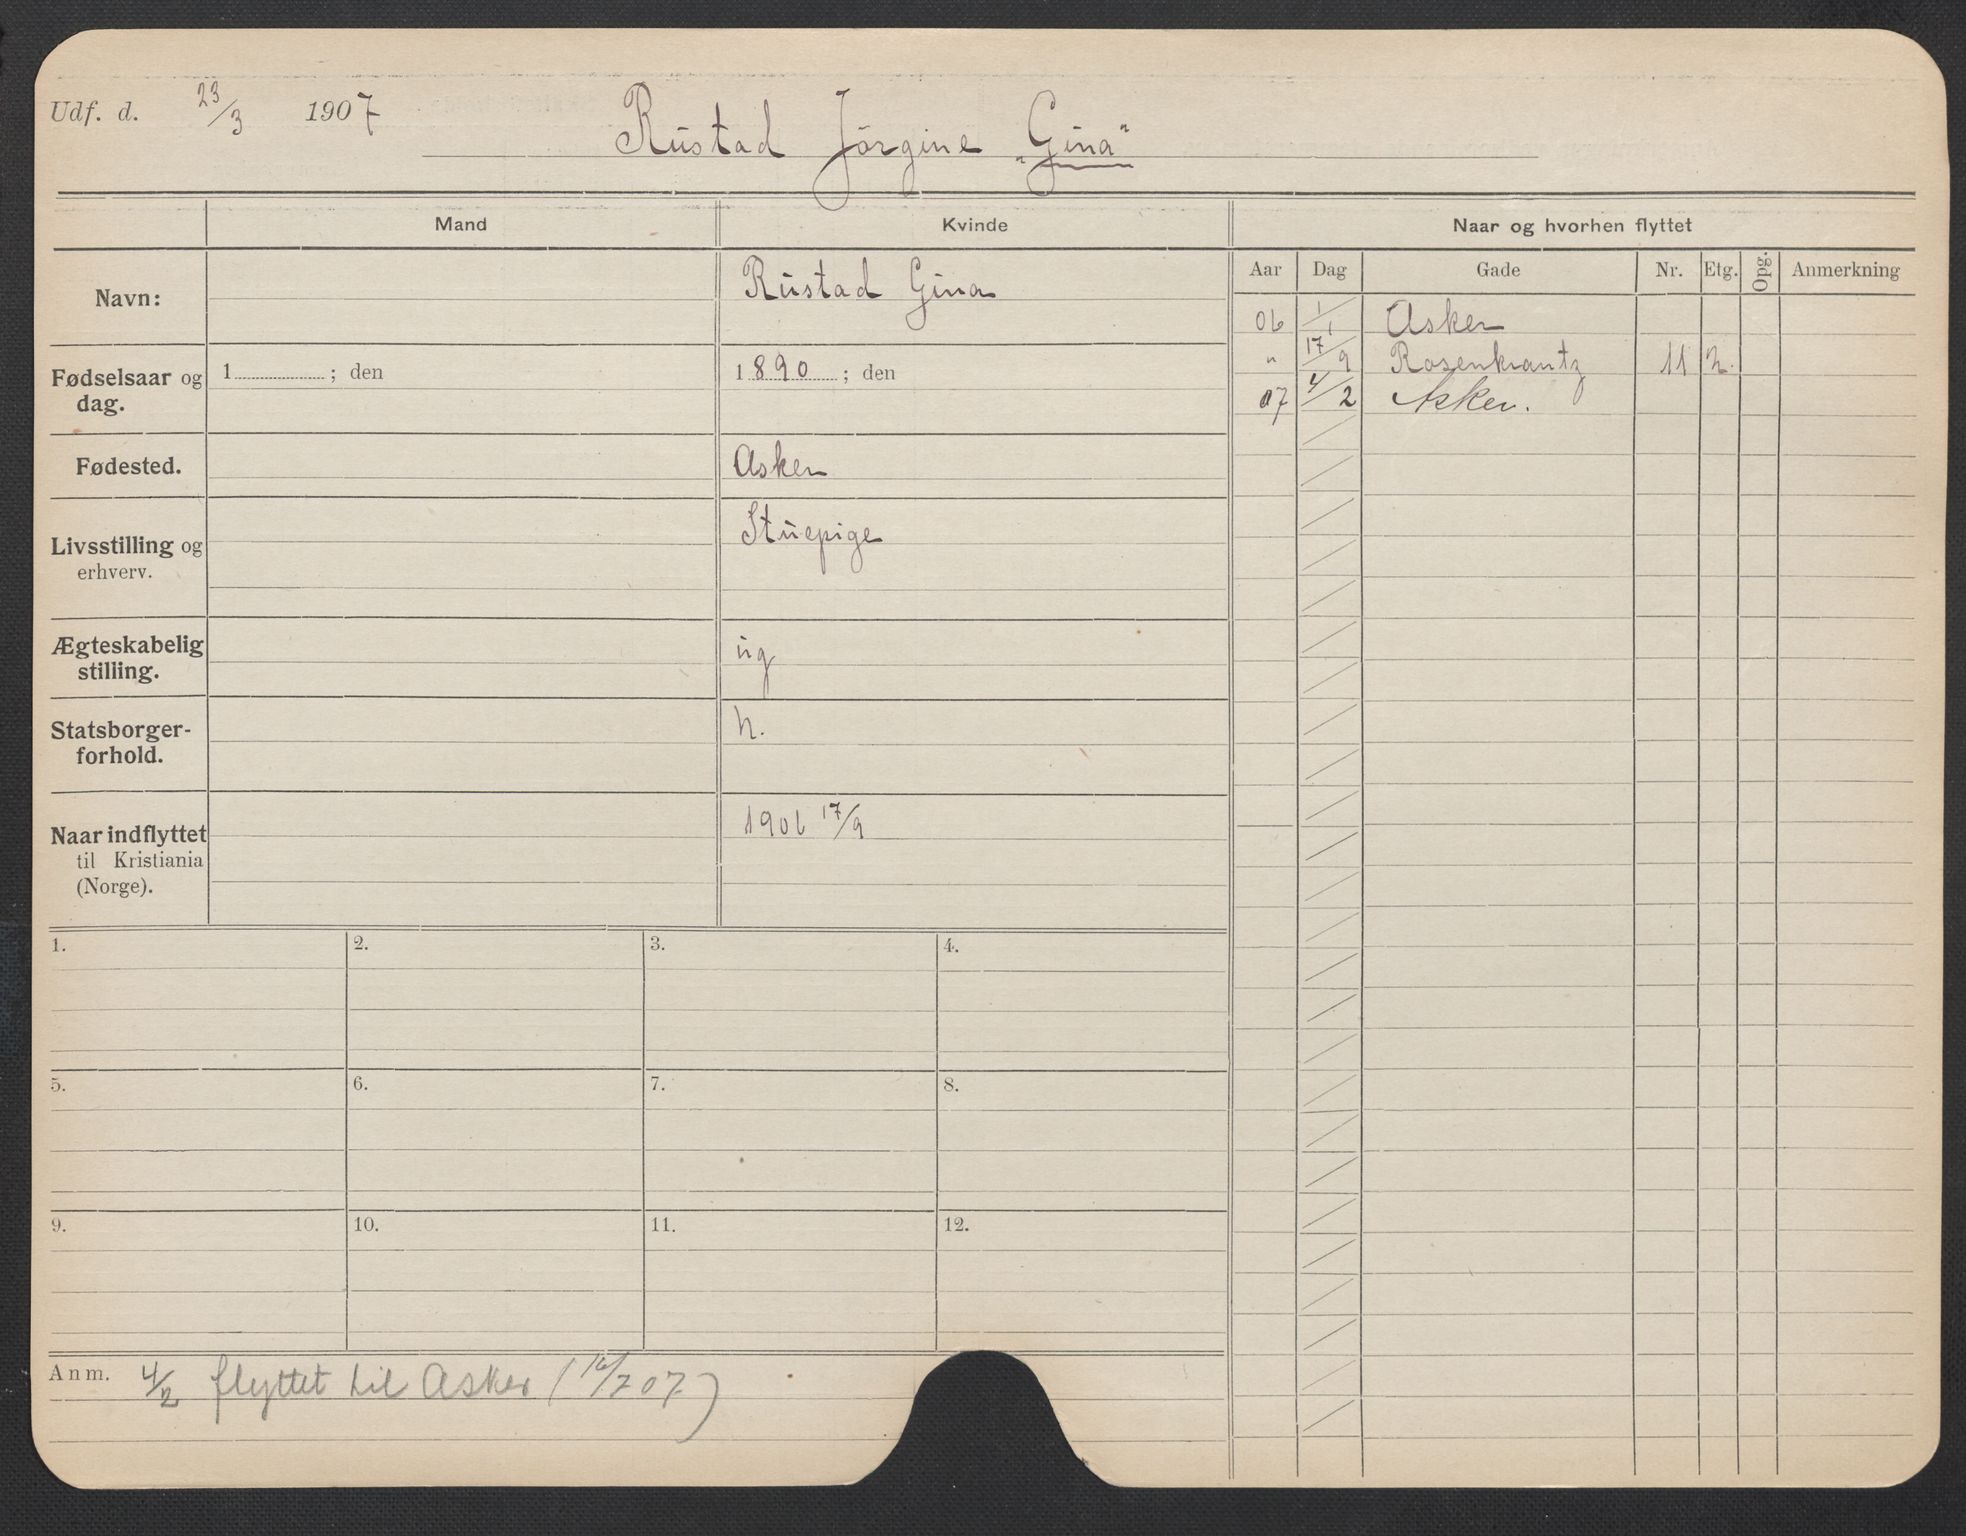 Udf. d. 23/3 1907 Rustad Jörgine "Gina"
Mand Kvinde Naar og hvorhen flyttet
Aar Dag Gade Nr. Etg. Opg. Anmerkning
Navn: Rustad Gina
06 1/1 Asker
" 17/9 Rosenkrantz 11 2.
07 4/2 Asker.
Fødselsaar og dag. 1 ; den 1890 ; den
Fødested. Asker
Livsstilling og erhverv. Stuepige
Ægteskabelig stilling. ug
Statsborger-forhold. n.
Naar indflyttet til Kristiania (Norge). 1906 17/9
1. 2. 3. 4.
5. 6. 7. 8.
9. 10. 11. 12.
Anm. 4/2 flyttet til Asker (16/7 07)